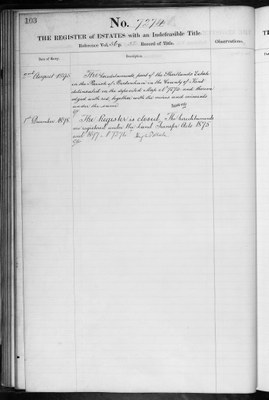 103
No. 7274
THE REGISTER of ESTATES with an Indefeasible Title
Reference Vol. p. Record of Title.
Date of Entry.
Description.
Observations.
August 1870
The hereditaments part of the Estate
in the Parish of in the County of Kent
delineated on the deposited Map No. 7274 and thereon
edged with red, together with the mines and minerals
under the same
December 1898
The Register is closed. The hereditaments
are registered under the Land Transfer Acts 1875
and 1897